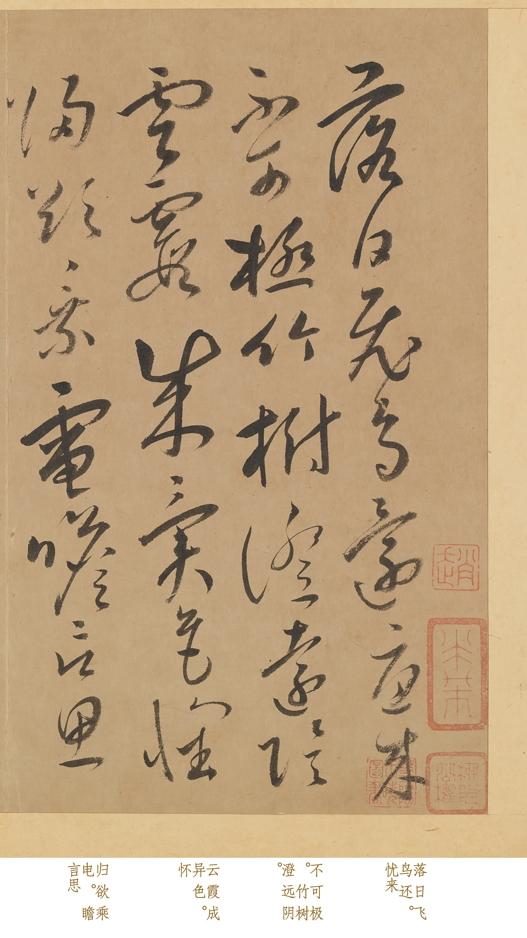 落日飛鳥還憂來
不可極竹樹澄遠陰
雲霞成異色懷
歸欲乘電瞻言思
落日飞
鸟还。
忧来
不可极
。竹树
澄远阴
。
云霞成
异色。
怀
归欲乘
电。瞻
言思